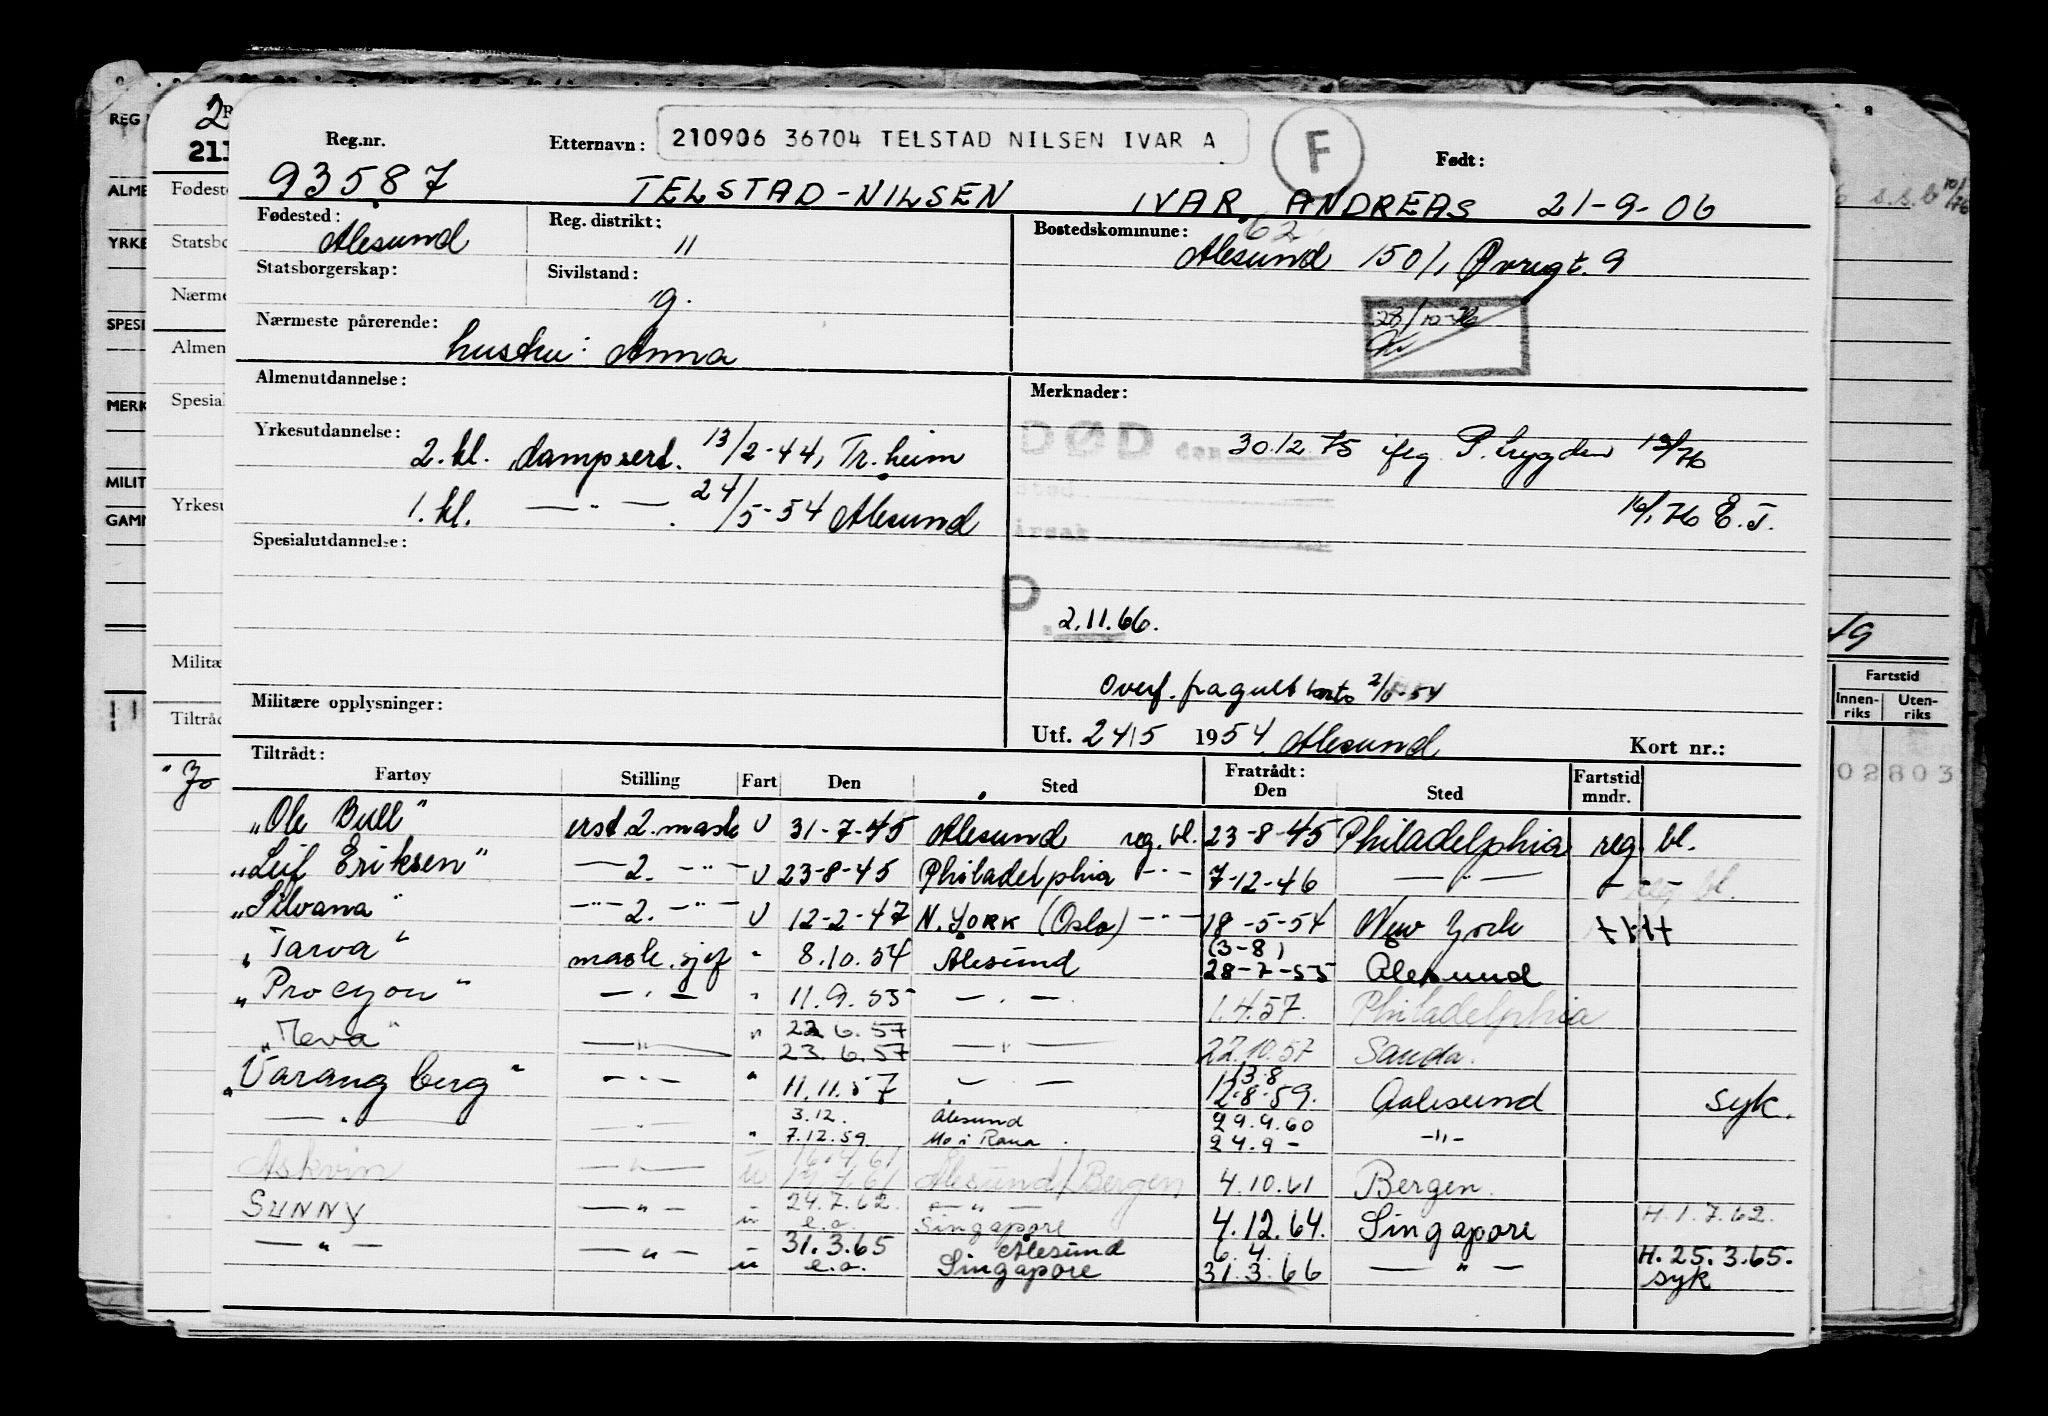 Reg.nr. Etternavn: 210906 36704 TELSTAD NILSEN IVAR A F Født:
93587 TELSTAD-NILSEN IVAR ANDREAS 21-9-06
Fødested: Reg. distrikt: Bostedskommune: 62
Ålesund 11 Ålesund 1501, Øvregt. 9
Statsborgerskap: Sivilstand:
g.
Nærmeste pårørende: 28/10-76
hustru: Anna
Almenutdannelse: Merknader:
Yrkesutdannelse: DØD den 30.12.75 iflg P. trygden 13/1 76
2. kl. dampsert. 13/2-44, Tr.heim
1. kl. — " — . 24/5-54 Ålesund 16/1 76 E.T.
Spesialutdannelse: årsak
2.11.66.
Overf. fra gult
Militære opplysninger: Utf. 24/5 1954 Ålesund Kort nr.:
Tiltrådt: Fratrådt:
Fartøy Stilling Fart Den Sted Den Sted Fartstid mndr.
"Ole Bull" erst 2. mask U 31-7-45 Ålesund reg. bl. 23-8-45 Philadelphia reg. bl.
"Leif Eriksen" — 2. -"- U 23-8-45 Philadelphia -"- 7-12-46 — " — reg bl.
"Silvana" -"- 2. -"- U 12-2-47 N. YORK (Oslo) -"- 18-5-54 New York
"Tarva" mask. sjef " 8.10.54 Ålesund (3-8) 28-7-55 Ålesund
"Procyon" — " — " 11.9.55 — " — 1.4.57. Philadelphia
"Meva" — " — " 22.6.57 23.6.57 — " — 22.10.57 Sauda.
"Varangberg" — " — " 11.11.57 — " — 13.8 12.8.59. Aalesund syk.
— " — — " — " 3.12. 7.12.59. Ålesund Mo i Rana. 29.9.60 24.9 - -"-
Askvin — " — u Ålesund/Bergen 4.10.61 Bergen.
SUNNY — " — u 24.7.62. e.o. — " — Singapore 4.12.64. Singapore H. 1.7.62.
— " — — " — u 31.3.65 e.o. Ålesund Singapore 6.4. 31.3.66 — " — H. 25.3.65. syk
2
211
REG
ALME
YRKE
SPESI
MERK
MILIT
GAMM
Fødeste
Statsbo
Nærme
Almen
Spesial
Yrkesu
Militæ
Tiltråd
Fartstid
Innen-riks Uten-riks
02803